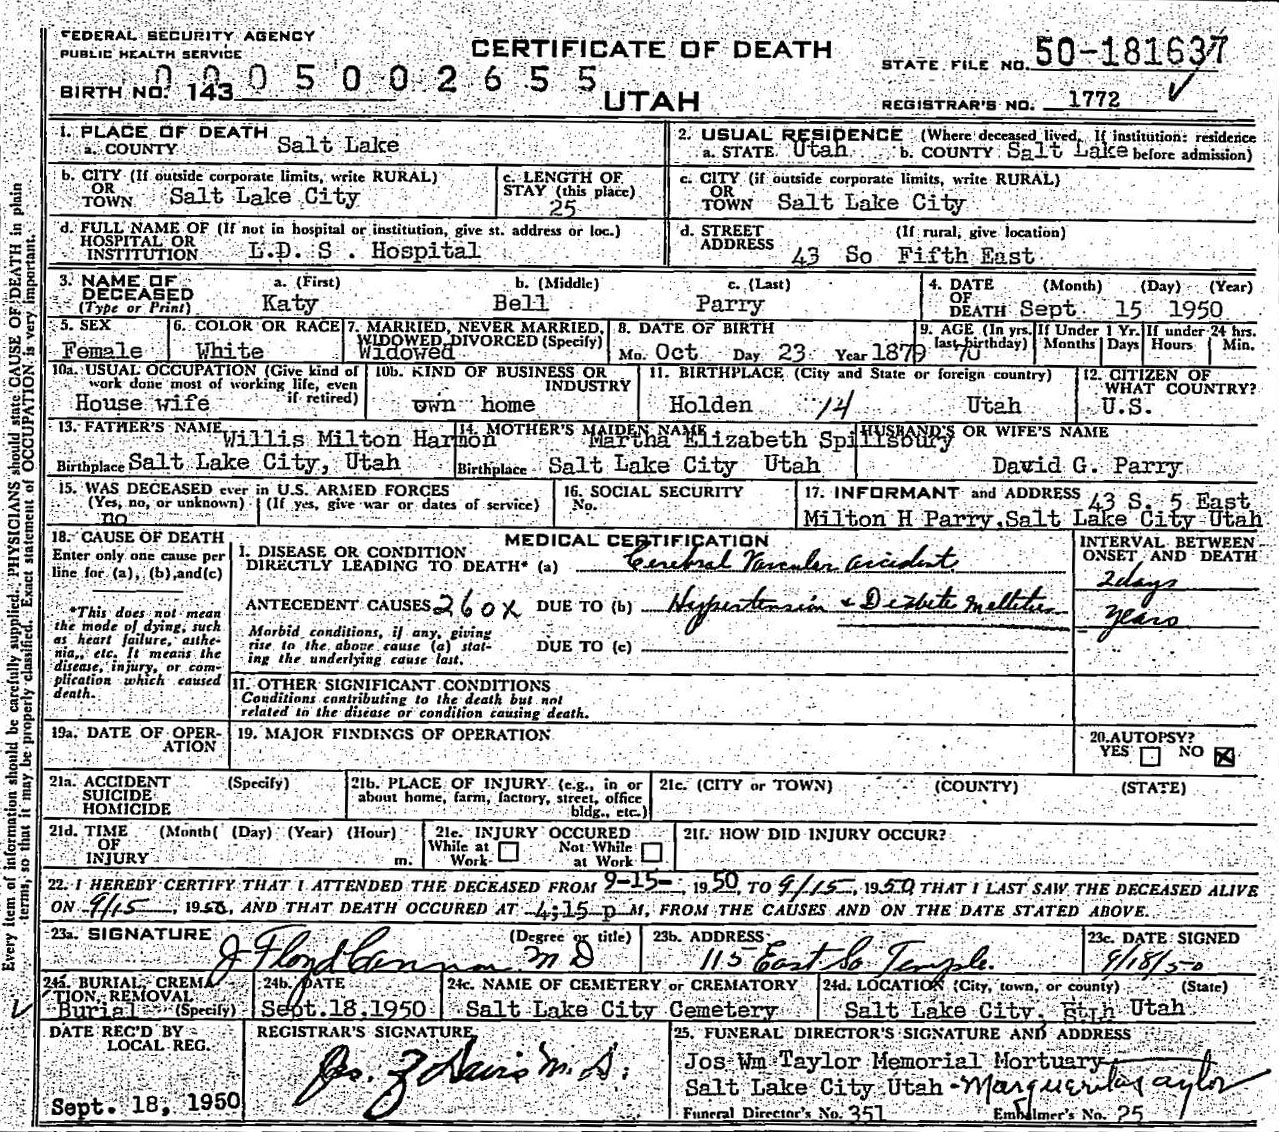 FEDERAL SECURITY AGENCY
PUBLIC HEALTH SERVICE
CERTIFICATE OF DEATH
STATE FILE NO. 50-181637
0005002655
BIRTH NO. 143
UTAH
REGISTRAR'S NO. 1772
1. PLACE OF DEATH
a. COUNTY Salt Lake
2. USUAL RESIDENCE (Where deceased lived. If institution: residence
a. STATE Utah b. COUNTY Salt Lake before admission)
b. CITY (If outside corporate limits, write RURAL)
OR
TOWN Salt Lake City
c. LENGTH OF
STAY (this place)
25
c. CITY (if outside corporate limits, write RURAL)
OR
TOWN Salt Lake City
d. FULL NAME OF (If not in hospital or institution, give st. address or loc.)
HOSPITAL OR
INSTITUTION L.D. S. Hospital
d. STREET (If rural, give location)
ADDRESS 43 So Fifth East
3. NAME OF
DECEASED
(Type or Print)
a. (First) b. (Middle) c. (Last)
Katy Bell Parry
4. DATE (Month) (Day) (Year)
OF
DEATH Sept. 15 1950
5. SEX
Female
6. COLOR OR RACE
White
7. MARRIED, NEVER MARRIED,
WIDOWED, DIVORCED (Specify)
Widowed
8. DATE OF BIRTH
Mo. Oct Day 23 Year 1879
9. AGE (In yrs.
last birthday) 70
If Under 1 Yr.
Months Days
If under 24 hrs.
Hours Min.
10a. USUAL OCCUPATION (Give kind of
work done most of working life, even
if retired)
House wife
10b. KIND OF BUSINESS OR
INDUSTRY
own home
11. BIRTHPLACE (City and State or foreign country)
Holden 14 Utah
12. CITIZEN OF
WHAT COUNTRY?
U.S.
13. FATHER'S NAME
Willis Milton Harmon
Birthplace Salt Lake City, Utah
14. MOTHER'S MAIDEN NAME
Martha Elizabeth Spillsbury
Birthplace Salt Lake City Utah
HUSBAND'S OR WIFE'S NAME
David G. Parry
15. WAS DECEASED ever in U.S. ARMED FORCES
(Yes, no, or unknown) (If yes, give war or dates of service)
no
16. SOCIAL SECURITY
No.
17. INFORMANT and ADDRESS 43 S. 5 East
Milton H Parry, Salt Lake City Utah
18. CAUSE OF DEATH
Enter only one cause per
line for (a), (b), and (c)
*This does not mean
the mode of dying, such
as heart failure, asthe-
nia,, etc. It means the
disease, injury, or com-
plication which caused
death.
MEDICAL CERTIFICATION
I. DISEASE OR CONDITION
DIRECTLY LEADING TO DEATH* (a) Cerebral Vascular accident
ANTECEDENT CAUSES 260X DUE TO (b) Hypertension & Diabete mellitus
Morbid conditions, if any, giving
rise to the above cause (a) stat-
ing the underlying cause last.
DUE TO (c)
INTERVAL BETWEEN
ONSET AND DEATH
2 days
years
II. OTHER SIGNIFICANT CONDITIONS
Conditions contributing to the death but not
related to the disease or condition causing death.
19a. DATE OF OPER-
ATION
19. MAJOR FINDINGS OF OPERATION
20. AUTOPSY?
YES NO
21a. ACCIDENT (Specify)
SUICIDE
HOMICIDE
21b. PLACE OF INJURY (e.g., in or
about home, farm, factory, street, office
bldg., etc.)
21c. (CITY or TOWN) (COUNTY) (STATE)
21d. TIME (Month( (Day) (Year) (Hour)
OF
INJURY m.
21e. INJURY OCCURED
While at Not While
Work at Work
21f. HOW DID INJURY OCCUR?
22. I HEREBY CERTIFY THAT I ATTENDED THE DECEASED FROM 9-15-, 1950, TO 9/15, 1950 THAT I LAST SAW THE DECEASED ALIVE
ON 9/15, 1950, AND THAT DEATH OCCURED AT 4:15 p M, FROM THE CAUSES AND ON THE DATE STATED ABOVE.
23a. SIGNATURE (Degree or title)
J Floyd Cannon M D
23b. ADDRESS
115 East So Temple.
23c. DATE SIGNED
9/18/50
24a. BURIAL, CREMA
TION, REMOVAL
Burial (Specify)
24b. DATE
Sept. 18, 1950
24c. NAME OF CEMETERY or CREMATORY
Salt Lake City Cemetery
24d. LOCATION (City, town, or county) (State)
Salt Lake City, Utah
DATE REC'D BY
LOCAL REG.
Sept. 18, 1950
REGISTRAR'S SIGNATURE
M. D.
25. FUNERAL DIRECTOR'S SIGNATURE AND ADDRESS
Jos Wm Taylor Memorial Mortuary
Salt Lake City Utah - Marguerite Taylor
Funeral Director's No. 351 Embalmer's No. 25
Every item of information should be carefully supplied. PHYSICIANS should state CAUSE OF DEATH in plain
terms, so that it may be properly classified. Exact statement of OCCUPATION is very important.